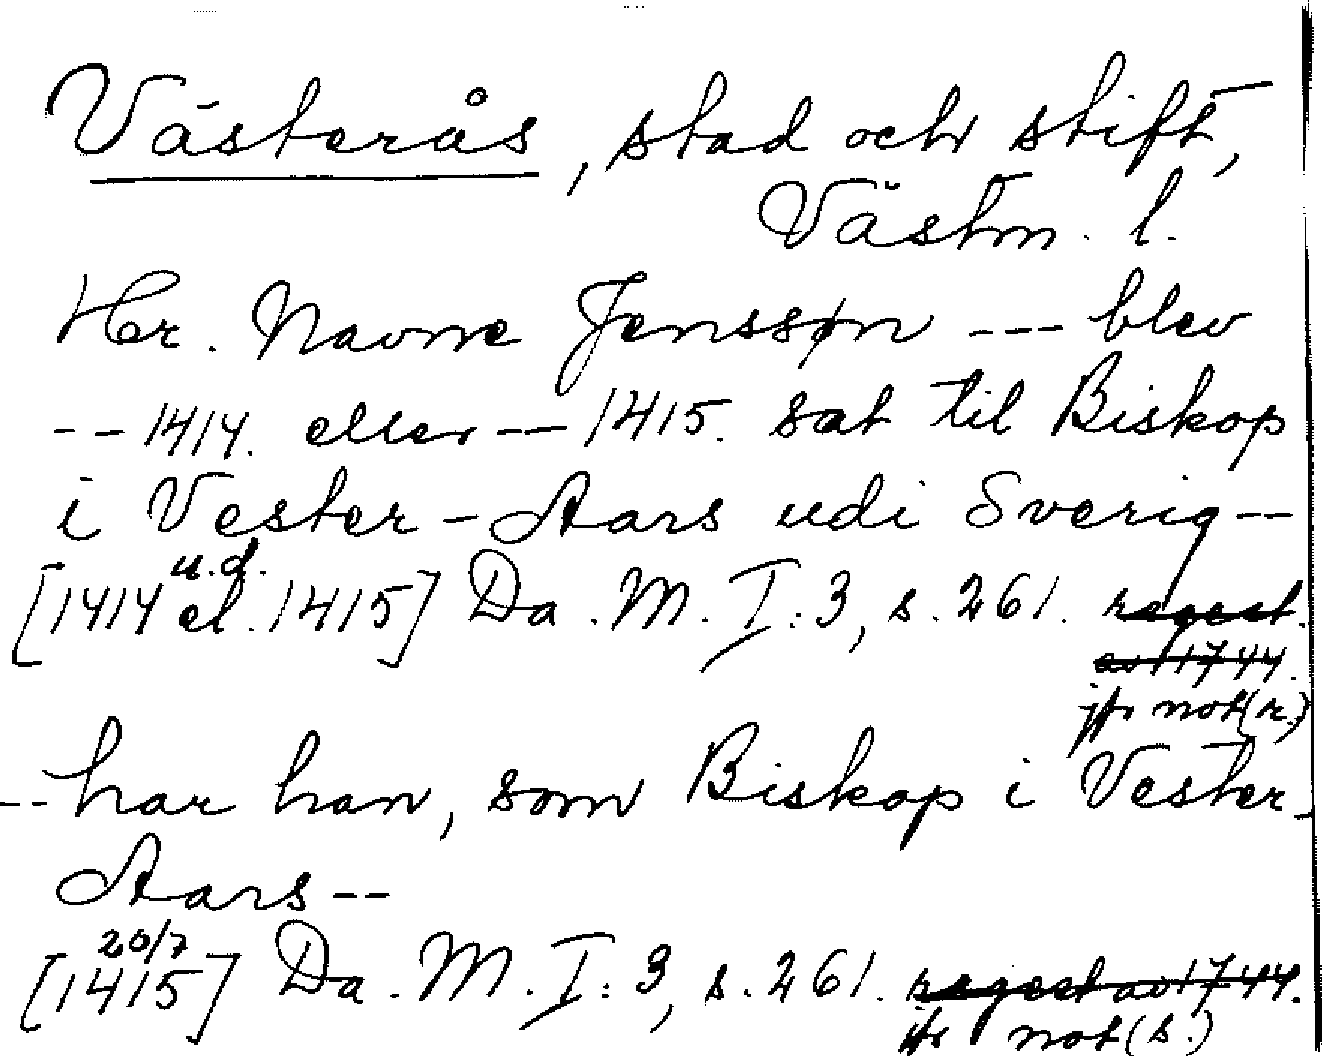 Västerås, stad och stift,
Västm. l.
Hr. Navne Jenssøn --- blev
-- 1414. eller -- 1415. sat til Biskop
i Vester-Aars udi Sverig --
u.d.
[1414 el. 1415] Da. M. I:3, s. 261. regest.
av 1744.
jfr not (r.)
-- har han, som Biskop i Vester-
Aars --
20/7
[1415] Da. M. I:3, s. 261. regest av 1744.
jfr not (s.)